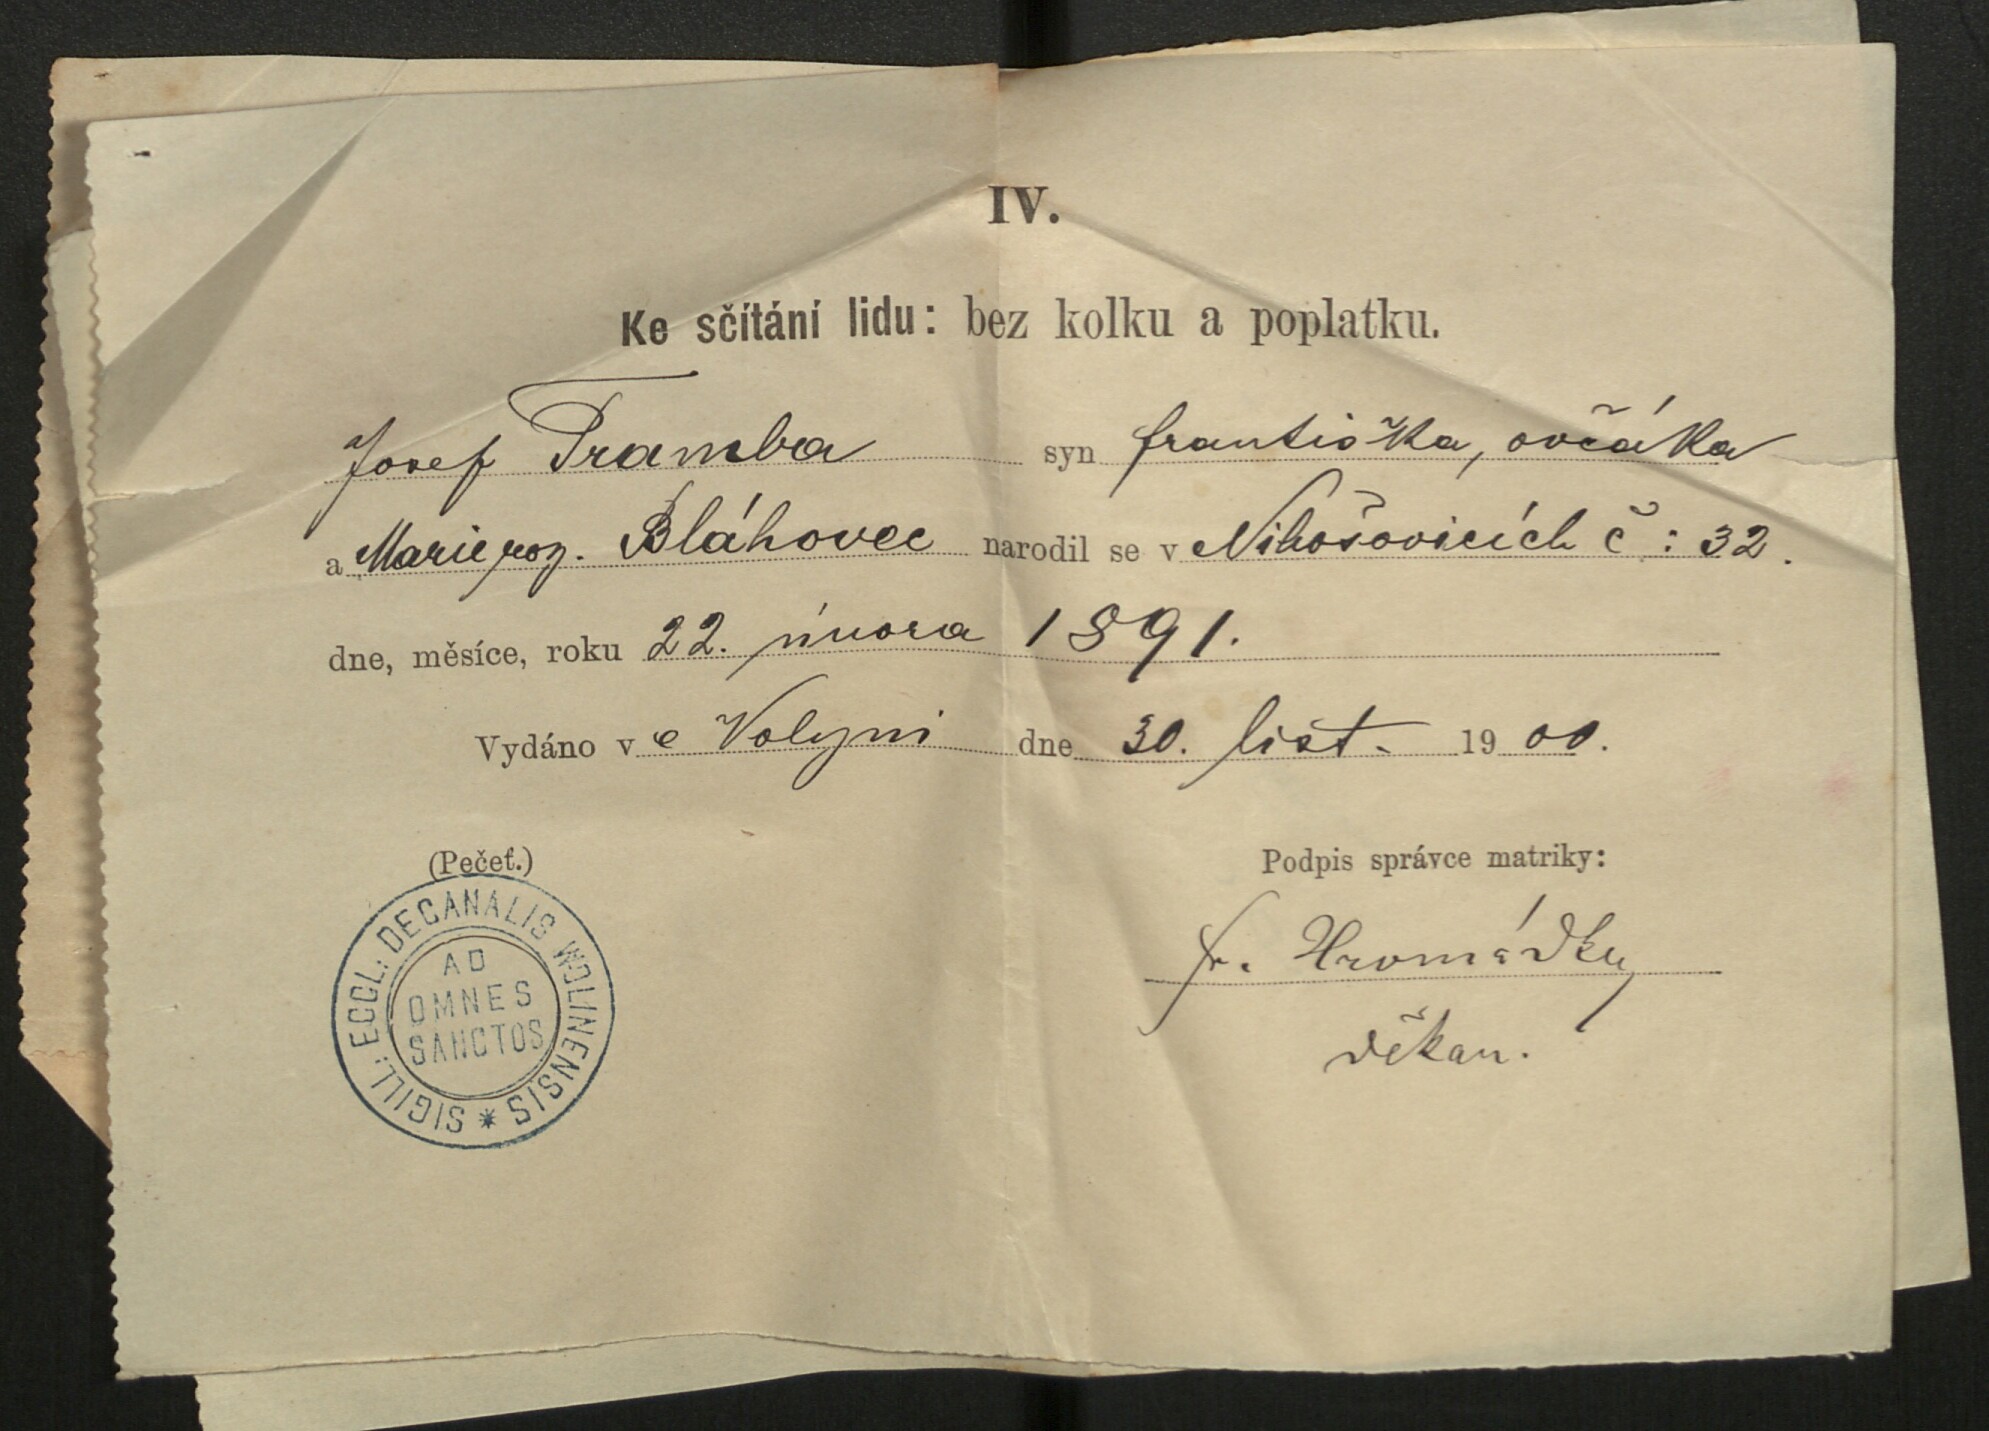 IV.
Ke sčítání lidu: bez kolku a poplatku.
Josef Tramba syn Františka, ovčáka
a Marie roz. Bláhovec narodil se v Nihošovicích č: 32.
dne, měsíce, roku 22. února 1891.
Vydáno v e Volyni dne 30. list. 1900.
(Pečeť.)
Podpis správce matriky:
SIGILL: ECCL: DECANALIS WOLINENSIS *
AD
OMNES
SANCTOS
Fr. Hromádka
děkan.